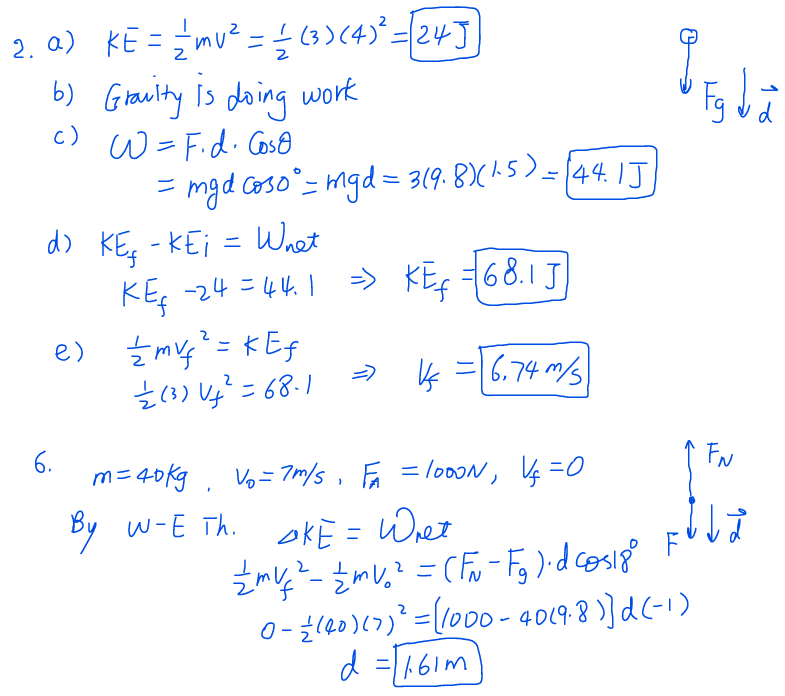 2. a) KE = 1/2 mv² = 1/2 (3)(4)² = 24J
b) Gravity is doing work
c) W = F.d. Cosθ
= mgd cos0° = mgd = 3(9.8)(1.5) = 44.1J
Fg d⃗
d) KEf - KEi = Wnet
KEf - 24 = 44.1 ⇒ KEf = 68.1 J
e) 1/2 mvf² = KEf
1/2 (3) Vf² = 68.1 ⇒ Vf = 6.74 m/s
6. m = 40kg, V₀ = 7m/s, FA = 1000N, Vf = 0
By W-E Th. ΔKE = Wnet
1/2 mVf² - 1/2 mV₀² = (FN - Fg).d cos18°
0 - 1/2 (40)(7)² = [1000 - 40(9.8)] d(-1)
d = 1.61m
FN
F d⃗